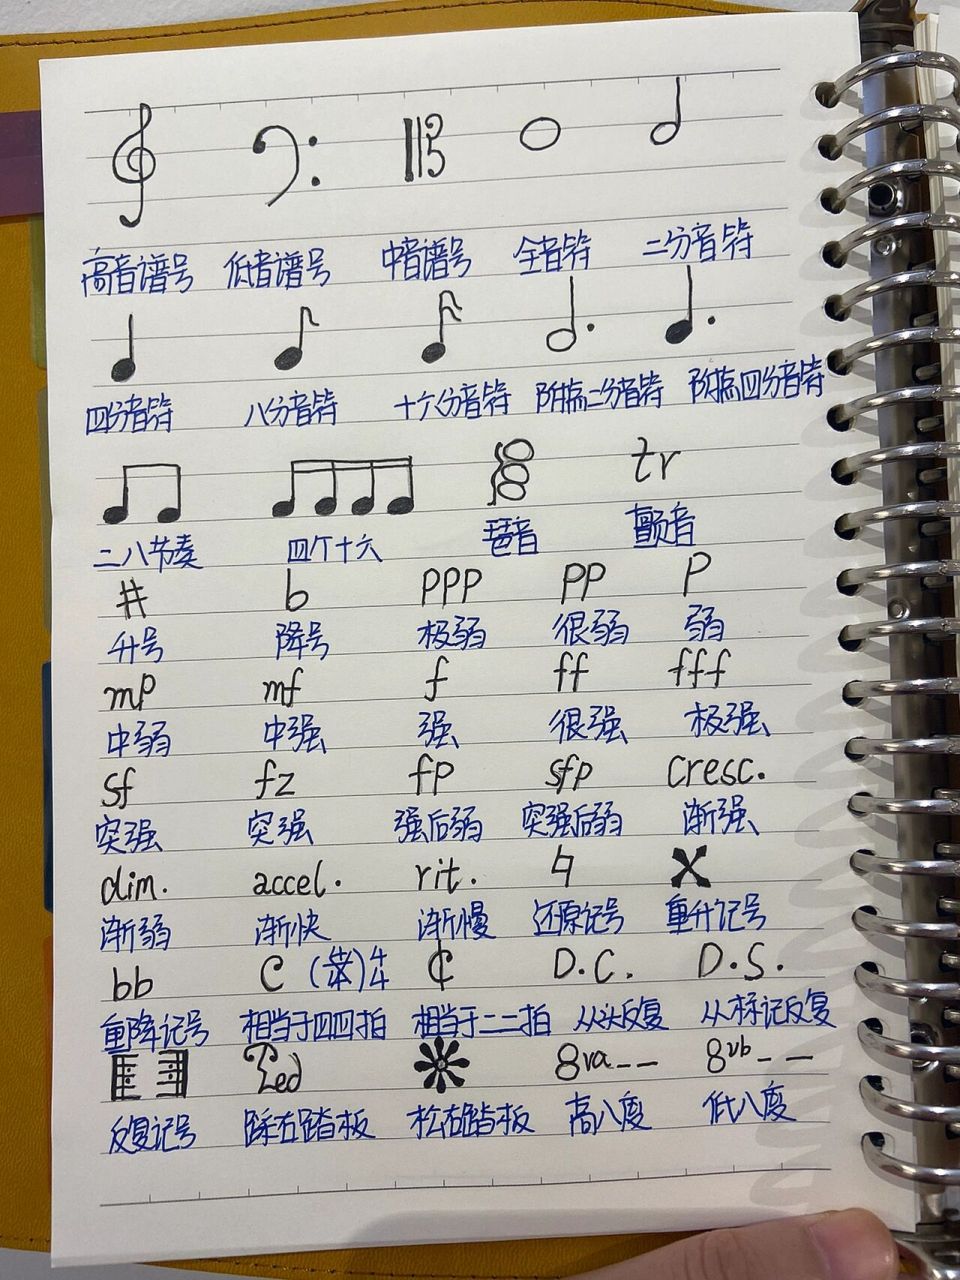 高音谱号 低音谱号 中音谱号 全音符 二分音符
四分音符 八分音符 十六分音符 附点二分音符 附点四分音符
tr
二八节奏 四个十六 琶音 颤音
# b ppp pp p
升号 降号 极弱 很弱 弱
mp mf f ff fff
中弱 中强 强 很强 极强
sf fz fp sfp cresc.
突强 突强 强后弱 突强后弱 渐强
dim. accel. rit. ♮ x
渐弱 渐快 渐慢 还原记号 重升记号
bb C ( )44 ¢ D.C. D.S.
重降记号 相当于四四拍 相当于二二拍 从头反复 从标记反复
Ped 8va-- 8vb--
反复记号 踩右踏板 松右踏板 高八度 低八度